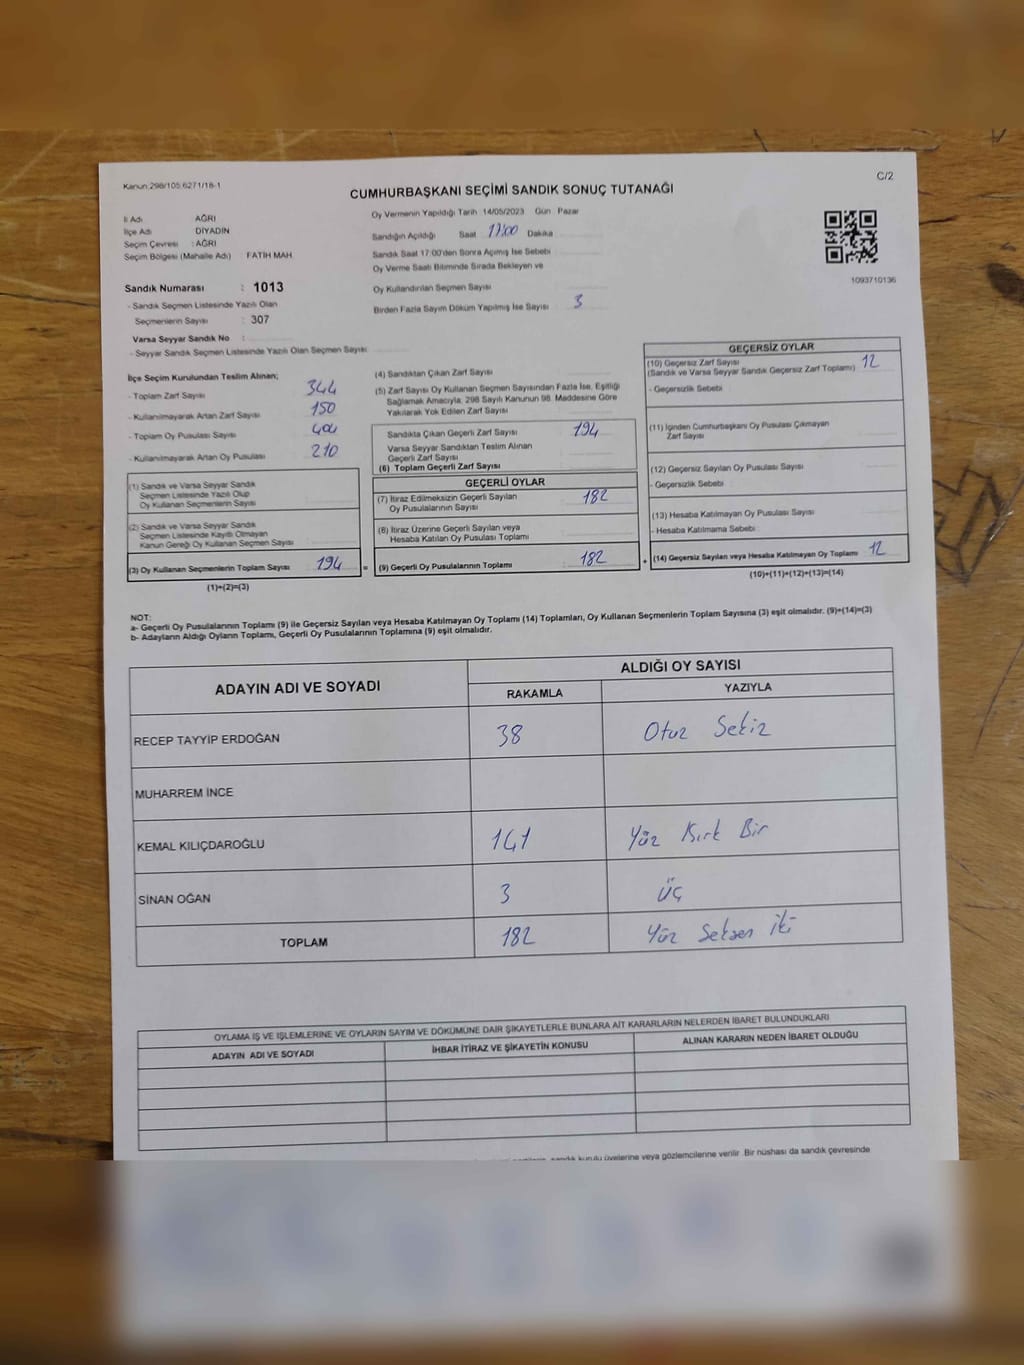 Kanun:298/105,6271/18-1
C/2
CUMHURBAŞKANI SEÇİMİ SANDIK SONUÇ TUTANAĞI
İl Adı AĞRI
İlçe Adı DİYADİN
Seçim Çevresi : AĞRI
Seçim Bölgesi (Mahalle Adı) FATİH MAH.
Oy Vermenin Yapıldığı Tarih 14/05/2023 Gün Pazar
Sandığın Açıldığı Saat 17:00 Dakika
Sandık Saat 17:00'den Sonra Açılmış İse Sebebi
Oy Verme Saati Bitiminde Sırada Bekleyen ve
Oy Kullandırılan Seçmen Sayısı
Birden Fazla Sayım Döküm Yapılmış İse Sayısı 3
1093710136
Sandık Numarası : 1013
- Sandık Seçmen Listesinde Yazılı Olan
Seçmenlerin Sayısı : 307
Varsa Seyyar Sandık No :
- Seyyar Sandık Seçmen Listesinde Yazılı Olan Seçmen Sayısı
İlçe Seçim Kurulundan Teslim Alınan;
- Toplam Zarf Sayısı 344
- Kullanılmayarak Artan Zarf Sayısı 150
- Toplam Oy Pusulası Sayısı 404
- Kullanılmayarak Artan Oy Pusulası 210
(1) Sandık ve Varsa Seyyar Sandık
Seçmen Listesinde Yazılı Olup
Oy Kullanan Seçmenlerin Sayısı
(2) Sandık ve Varsa Seyyar Sandık
Seçmen Listesinde Kayıtlı Olmayan
Kanun Gereği Oy Kullanan Seçmen Sayısı
(3) Oy Kullanan Seçmenlerin Toplam Sayısı 194 =
(1)+(2)=(3)
(4) Sandıktan Çıkan Zarf Sayısı
(5) Zarf Sayısı Oy Kullanan Seçmen Sayısından Fazla İse, Eşitliği
Sağlamak Amacıyla, 298 Sayılı Kanunun 98. Maddesine Göre
Yakılarak Yok Edilen Zarf Sayısı
Sandıkta Çıkan Geçerli Zarf Sayısı 194
Varsa Seyyar Sandıktan Teslim Alınan
Geçerli Zarf Sayısı
(6) Toplam Geçerli Zarf Sayısı
GEÇERLİ OYLAR
(7) İtiraz Edilmeksizin Geçerli Sayılan
Oy Pusulalarının Sayısı 182
(8) İtiraz Üzerine Geçerli Sayılan veya
Hesaba Katılan Oy Pusulası Toplamı
(9) Geçerli Oy Pusulalarının Toplamı : 182 +
GEÇERSİZ OYLAR
(10) Geçersiz Zarf Sayısı 12
(Sandık ve Varsa Seyyar Sandık Geçersiz Zarf Toplamı)
- Geçersizlik Sebebi :
(11) İçinden Cumhurbaşkanı Oy Pusulası Çıkmayan
Zarf Sayısı
(12) Geçersiz Sayılan Oy Pusulası Sayısı
- Geçersizlik Sebebi :
(13) Hesaba Katılmayan Oy Pusulası Sayısı
- Hesaba Katılmama Sebebi :
(14) Geçersiz Sayılan veya Hesaba Katılmayan Oy Toplamı 12
(10)+(11)+(12)+(13)=(14)
NOT:
a- Geçerli Oy Pusulalarının Toplamı (9) ile Geçersiz Sayılan veya Hesaba Katılmayan Oy Toplamı (14) Toplamları, Oy Kullanan Seçmenlerin Toplam Sayısına (3) eşit olmalıdır. (9)+(14)=(3)
b- Adayların Aldığı Oyların Toplamı, Geçerli Oy Pusulalarının Toplamına (9) eşit olmalıdır.
ADAYIN ADI VE SOYADI
ALDIĞI OY SAYISI
RAKAMLA YAZIYLA
RECEP TAYYİP ERDOĞAN 38 Otuz Sekiz
MUHARREM İNCE
KEMAL KILIÇDAROĞLU 141 Yüz Kırk Bir
SİNAN OĞAN 3 Üç
TOPLAM 182 Yüz Seksen İki
OYLAMA İŞ VE İŞLEMLERİNE VE OYLARIN SAYIM VE DÖKÜMÜNE DAİR ŞİKAYETLERLE BUNLARA AİT KARARLARIN NELERDEN İBARET BULUNDUKLARI
ADAYIN ADI VE SOYADI
İHBAR İTİRAZ VE ŞİKAYETİN KONUSU
ALINAN KARARIN NEDEN İBARET OLDUĞU
sandık kurulu üyelerine veya gözlemcilerine verilir. Bir nüshası da sandık çevresinde